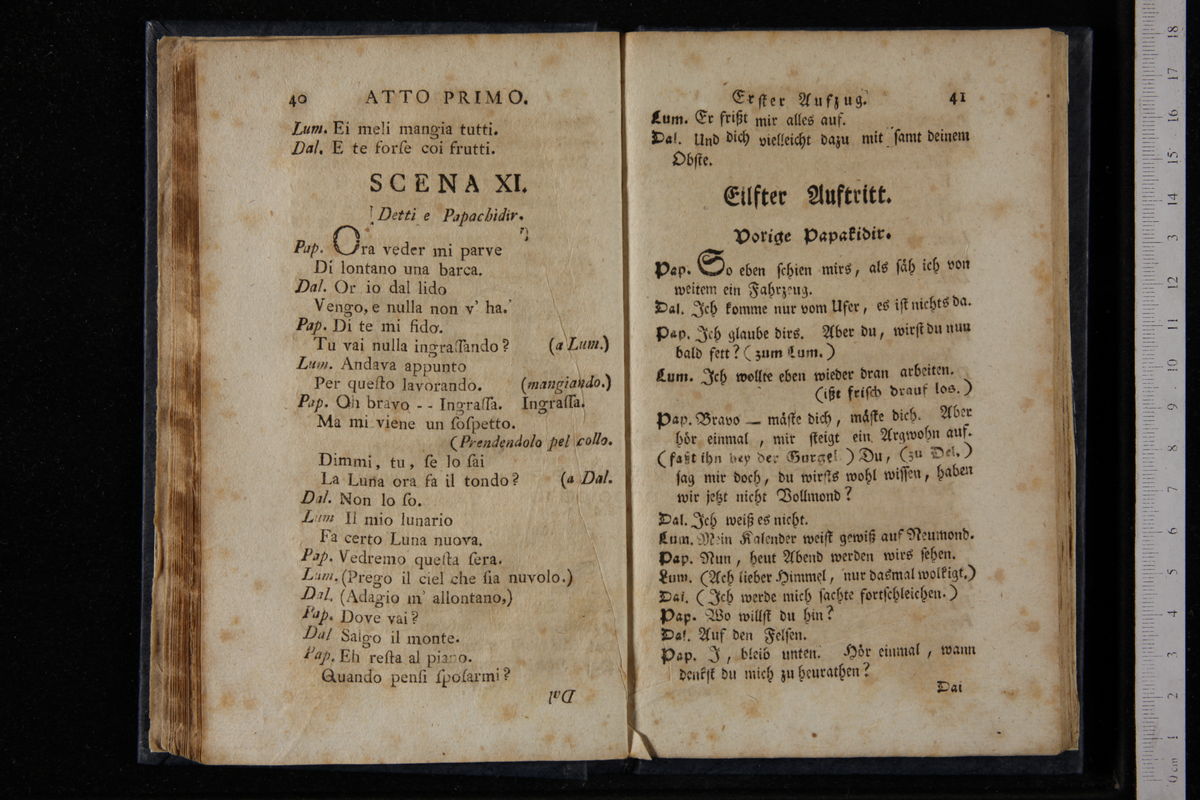 40 ATTO PRIMO.
Lum. Ei meli mangia tutti.
Dal. E te forſe coi frutti.
SCENA XI.
Detti e Papachidir.
Pap. Ora veder mi parve
Di lontano una barca.
Dal. Or io dal lido
Vengo, e nulla non v' ha.
Pap. Di te mi fido.
Tu vai nulla ingraſſando? (a Lum.)
Lum. Andava appunto
Per queſto lavorando. (mangiando.)
Pap. Oh bravo -- Ingraſſa. Ingraſſa.
Ma mi viene un ſoſpetto.
(Prendendolo pel collo.
Dimmi, tu, ſe lo ſai
La Luna ora fa il tondo? (a Dal.
Dal. Non lo ſo.
Lum Il mio lunario
Fa certo Luna nuova.
Pap. Vedremo queſta ſera.
Lum. (Prego il ciel che ſia nuvolo.)
Dal. (Adagio m' allontano,)
Pap. Dove vai?
Dal Salgo il monte.
Pap. Eh reſta al piano.
Quando penſi ſpoſarmi?
Dal
Erſter Aufzug. 41
Lum. Er frißt mir alles auf.
Dal. Und dich vielleicht dazu mit ſamt deinem
Obſte.
Eilfter Auftritt.
Vorige Papakidir.
Pap. So eben ſchien mirs, als ſäh ich von
weitem ein Fahrzeug.
Dal. Ich komme nur vom Ufer, es iſt nichts da.
Pap. Ich glaube dirs. Aber du, wirſt du nun
bald fett? (zum Lum.)
Lum. Ich wollte eben wieder dran arbeiten.
(ißt friſch drauf los.)
Pap. Bravo — mäſte dich, mäſte dich. Aber
hör einmal, mir ſteigt ein Argwohn auf.
(faßt ihn bey der Gurgel.) Du, (zu Del.)
ſag mir doch, du wirſts wohl wiſſen, haben
wir jetzt nicht Vollmond?
Dal. Ich weiß es nicht.
Lum. Mein Kalender weiſt gewiß auf Neumond.
Pap. Nun, heut Abend werden wirs ſehen.
Lum. (Ach lieber Himmel, nur dasmal wolkigt.)
Dal. (Ich werde mich ſachte fortſchleichen.)
Pap. Wo willſt du hin?
Dal. Auf den Felſen.
Pap. J, bleib unten. Hör einmal, wann
denkſt du mich zu heurathen?
Dal
0 cm 1 2 3 4 5 6 7 8 9 10 11 12 13 14 15 16 17 18